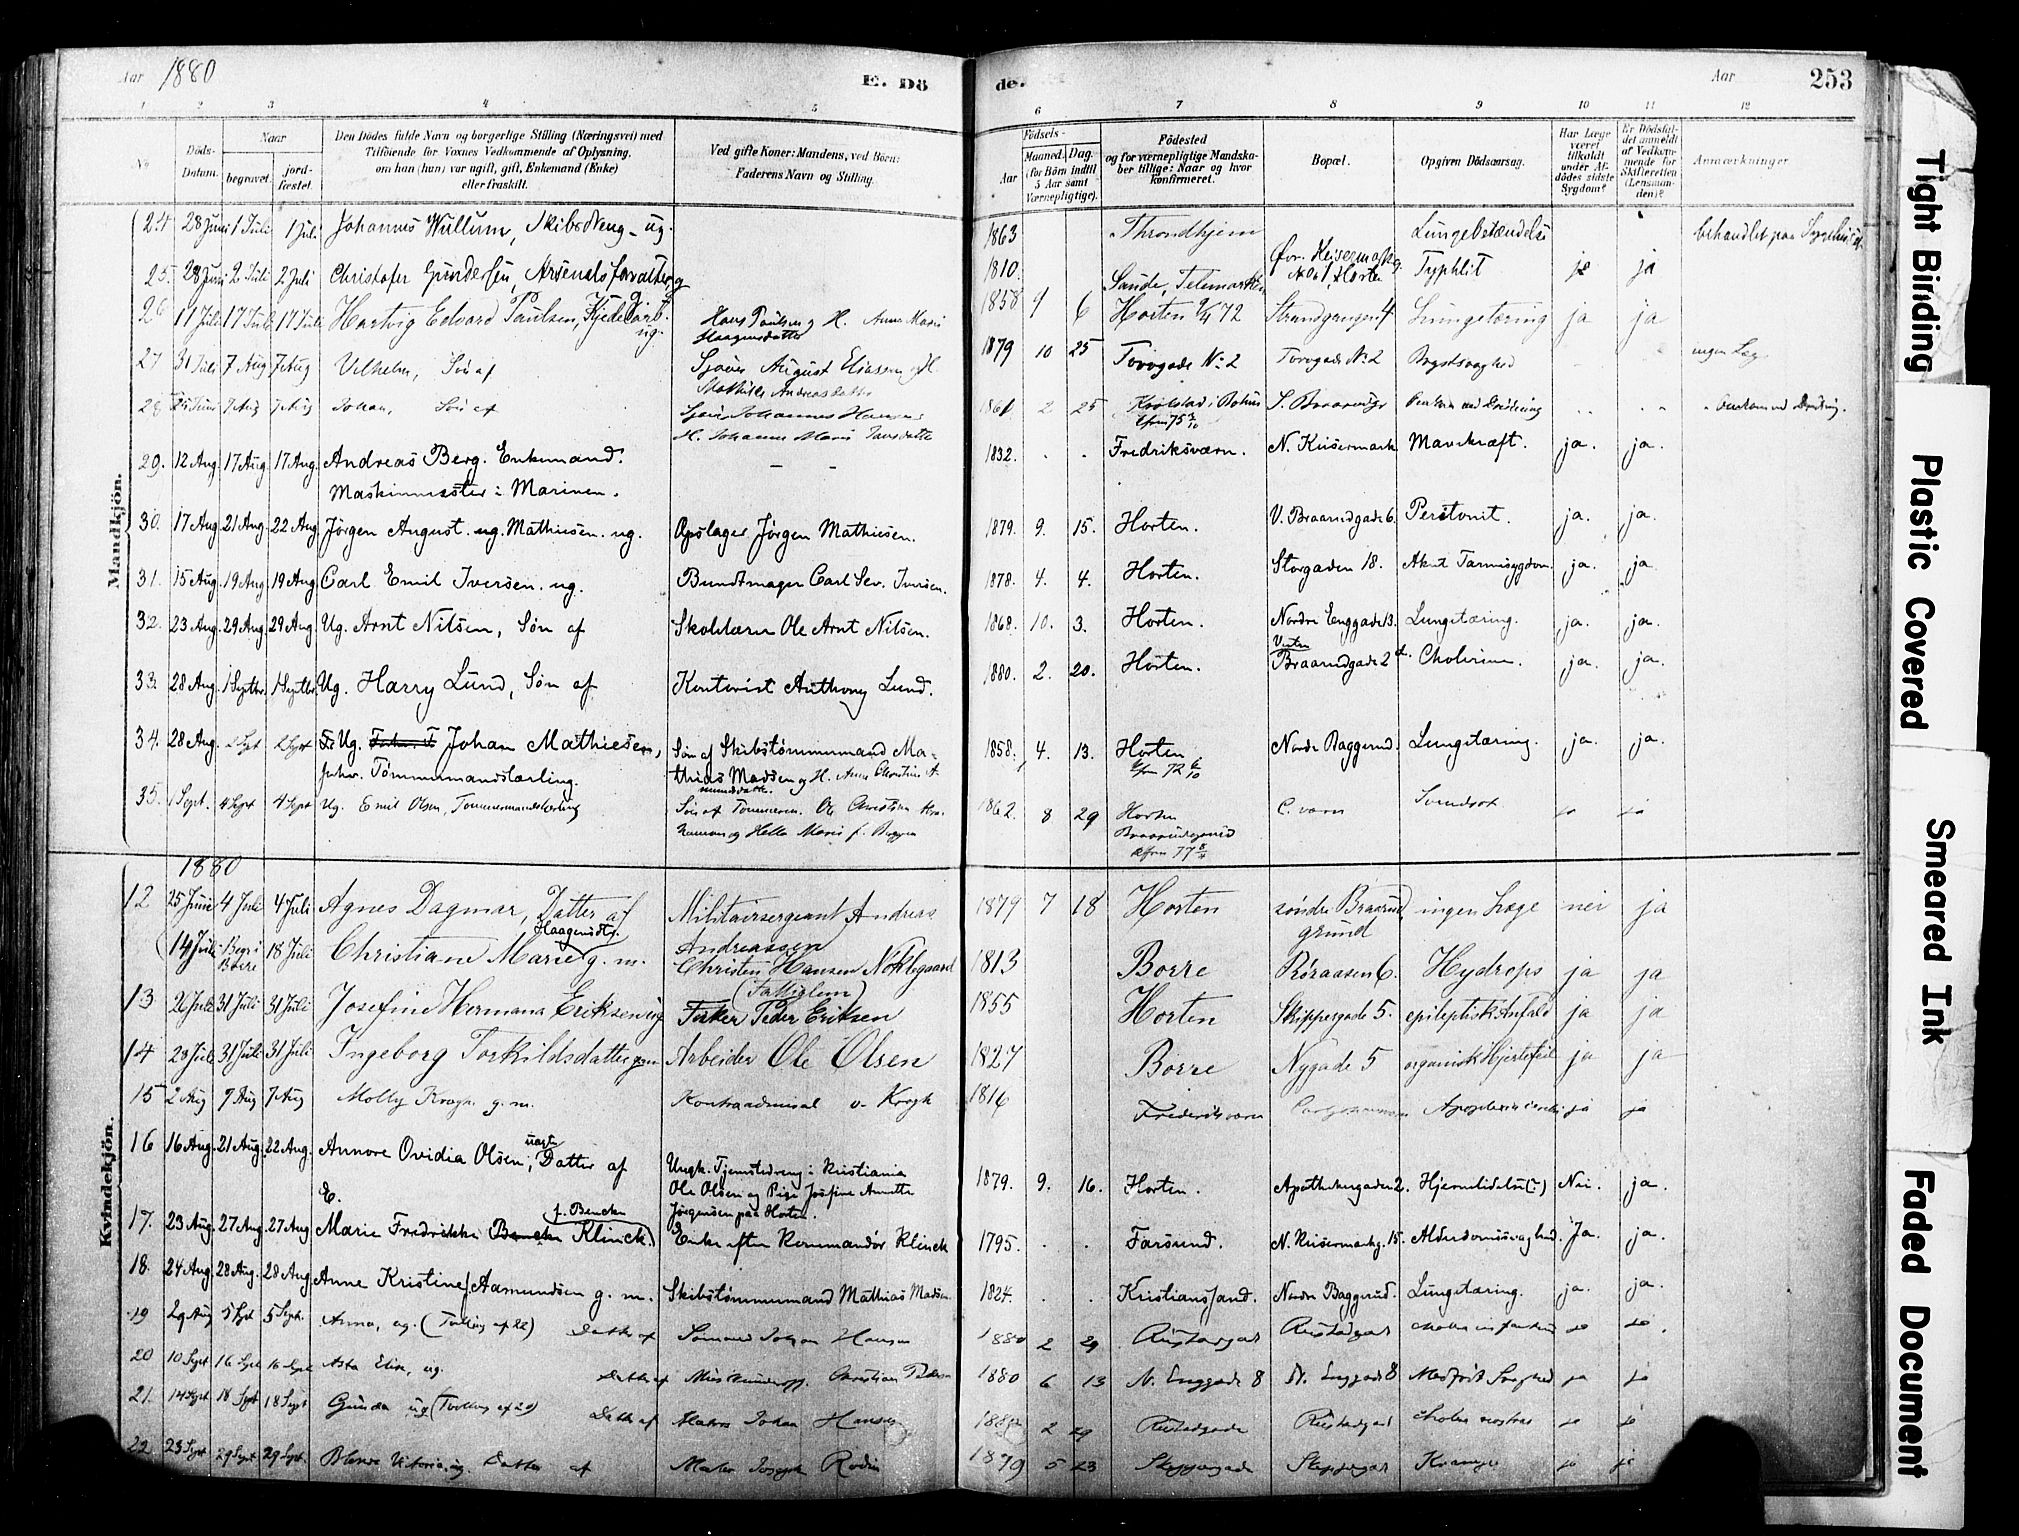 Aar 1880
E. Dö
de.
Aar
253
1 2 3 4 5 6 7 8 9 10 11 12
No
Döds-Datum.
Naar
begravet.
jordfæstet.
Den Dödes fulde Navn og borgerlige Stilling (Næringsvei) med
Tilföiende for Voxnes Vedkommende af Oplysning,
om han (hun) var ugift, gift, Enkemand (Enke)
eller fraskilt.
Ved gifte Koner: Mandens, ved Börn:
Faderens Navn og Stilling.
Födsels-
Aar
Maaned. Dag.
(for Börn indtil
5 Aar samt
Værnepligtige).
Födested
og for værnepligtige Mandska-
ber tillige: Naar og hvor
konfirmeret.
Bopæl.
Opgiven Dödsaarsag.
Har Læge
været
tilkaldt
under Af-
dödes sidste
Sygdom?
Er Dödsfal-
det anmeldt
af Vedkom-
mende for
Skifteretten
(Lensman-
den)?
Anmærkninger
Mandkjön.
24 28 Juni 1 Juli 1 Juli Johannes Wullum, Skibsdreng - ug. 1863 Throndhjem Lungebetændelse behandlet paa
25. 28 Juni 2 Juli 2 Juli Christofer Gundersen, Arsenalsforvalter, g 1810. Sande, Telemarken No 1, Horten Typhlit ja ja
26 11 Juli 17 Juli 17 Juli Hartvig Edvard Paulsen, ug. Hans Paulsen og H. Anne Marie
Haagensdatter 1858 9 6 Horten 72 Strandgaugen 4 Lungetæring ja ja
27 31 Juli 7 Aug 7 Aug Vilhelm, Søn af August Eliasen og H.
Mathilde Andreasdatter 1879 10 25 Torvgade No 2 Torvgade No 2 Brystsvaghed ingen Læge
28 25 Juni 7 Aug 7 Aug Johan, Søn af Johannes Hansen
H. Johanne Marie 1861 2 25 75
29. 12 Aug. 17 Aug. 17 Aug. Andreas Berg. Enkemand.
Maskinmester i Marinen. - - 1832. Fredriksværn. N. Keisermark Mavekræft. ja. ja.
30. 17 Aug. 21 Aug. 22 Aug Jørgen August ug. Mathiesen. ug. Opslager Jørgen Mathiesen. 1879. 9. 15. Horten. V. Braarudgade 6. Peritonit. ja. ja.
31. 15 Aug. 19 Aug. 19 Aug. Carl Emil Iversen. ug. Bundtmager Carl Sev. Iversen. 1878. 4. 4. Horten. Storgaden 18. Akut Tarmsygdom ja. ja.
32. 23 Aug. 29 Aug. 29 Aug. Ug. Arnt Nilsen, Søn af Skolelærer Ole Arnt Nilsen. 1868. 10. 3. Horten. Nordre Enggade 13. Lungetæring. ja. ja.
33. 28 Aug. 1 Septbr. 1 Septbr. Ug. Harry Lund, Søn af Kontorist Anthony Lund. 1880. 2. 20. Horten. Vestre
Braarudgade 2 Cholerine. ja. ja.
34. 28 Aug. 2 Sept 2 Sept Ug. Johan Mathiesen,
forhv. Tømmermandslærling. Søn af Skibstømmermand Ma-
thias Madsen og H. Anne Christine A-
mundsdatter. 1858. 4. 13. Horten
72 Nordre Baggerud. Lungetæring. ja. ja.
35. 1 Sept. 4 Sept 4 Sept Ug. Emil Olsen, Tømmermandslærling Søn af Tømmerm. Ole Christian
og Helle Marie f. 1862. 8 29 Horten
77 C. værn ja ja
Kvindekjön.
1880
12 25 Juni 4 Juli 4 Juli Agnes Dagmar, Datter af Militairsergeant Andreas
Andreassen 1879 7 18 Horten søndre Braarud
grund ingen Læge nei ja
14 Juli Begr. i
Borre 18 Juli Christiane Marie Haagensdtr. g. m. Christen Hansen Nøklegaard
(Fattiglem) 1813 Borre Røraasen 6. Hydrops ja ja
13 26 Juli 31 Juli 31 Juli Josefine Hermana Eriksen ug Fisker Peder Eriksen 1855 Horten Skippergade 5. epileptisk Anfald ja ja
14 28 Juli 31 Juli 31 Juli Ingeborg Torkildsdatter g.m. Arbeider Ole Olsen 1827 Borre Nygade 5 organisk Hjertefeil ja ja
15 2 Aug 7 Aug 7 Aug Molly Krogh g. m. Kontraadmiral v. Krogh 1816 Frederiksværn ja ja
16 16 Aug. 21 Aug. 22 Aug. Annore Ovidia Olsen, uægte Datter af Ungk. Tjenestedreng i Kristiania
Ole Olsen og Pige Josefine Annette
Jørgensen paa Horten. 1879. 9. 16. Horten. Apothekergaden 2. Hjernelidelse (?) Nei. ja.
17. 23 Aug. 27 Aug. 27 Aug. E.
Marie Fredrikke Bencke Klinck. f. Bencke Enke efter Kommandør Klinck 1795. Farsund. N. Keisermarkg. 15. Alderdomssvaghed. Ja. ja.
18. 24 Aug. 28 Aug. 28 Aug. Anne Kristine Aamundsen g. m. Skibstømmermand Mathias Madsen. 1824. Kristianssand. Nordre Baggerud. Lungetæring. ja. ja.
19 29 Aug 5 Sept 5 Sept. Anna, ug. (Tvilling af 22) Datter af Sømand Johan Hansen 1880 2 29 Rustadgad Rustadgad ja ja.
20 10 Sept 16 Sept 16 Sept Asta Elise, ug. Datter af Christian 1880 6 13 N. Enggade 8 N. Enggade 8 Medfødt Svaghed ja ja
21. 14 Sept 18 Sept 18 Sept Gunda ug (Tvilling af 20) Datter af Johan Hansen 1880 2 29 Rustadgade Rustadgad cholera nostras ja ja
22 23 Sept 29 Sept 29 Sept. Viktoria, ug. Datter af Maler Joseph Rodin 1879 5 23 Skippergade Skippergad Krampe ja ja
Tight Binding
Plastic Covered
Smeared Ink
Faded Document